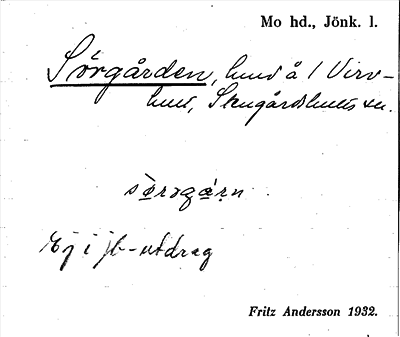 Mo hd., Jönk. l.
Sörgården, hmd å 1 Virv-
hult, Stengårdshults sn.
sö̀rǝgárṇ
Ej i jb-utdrag
Fritz Andersson 1932.